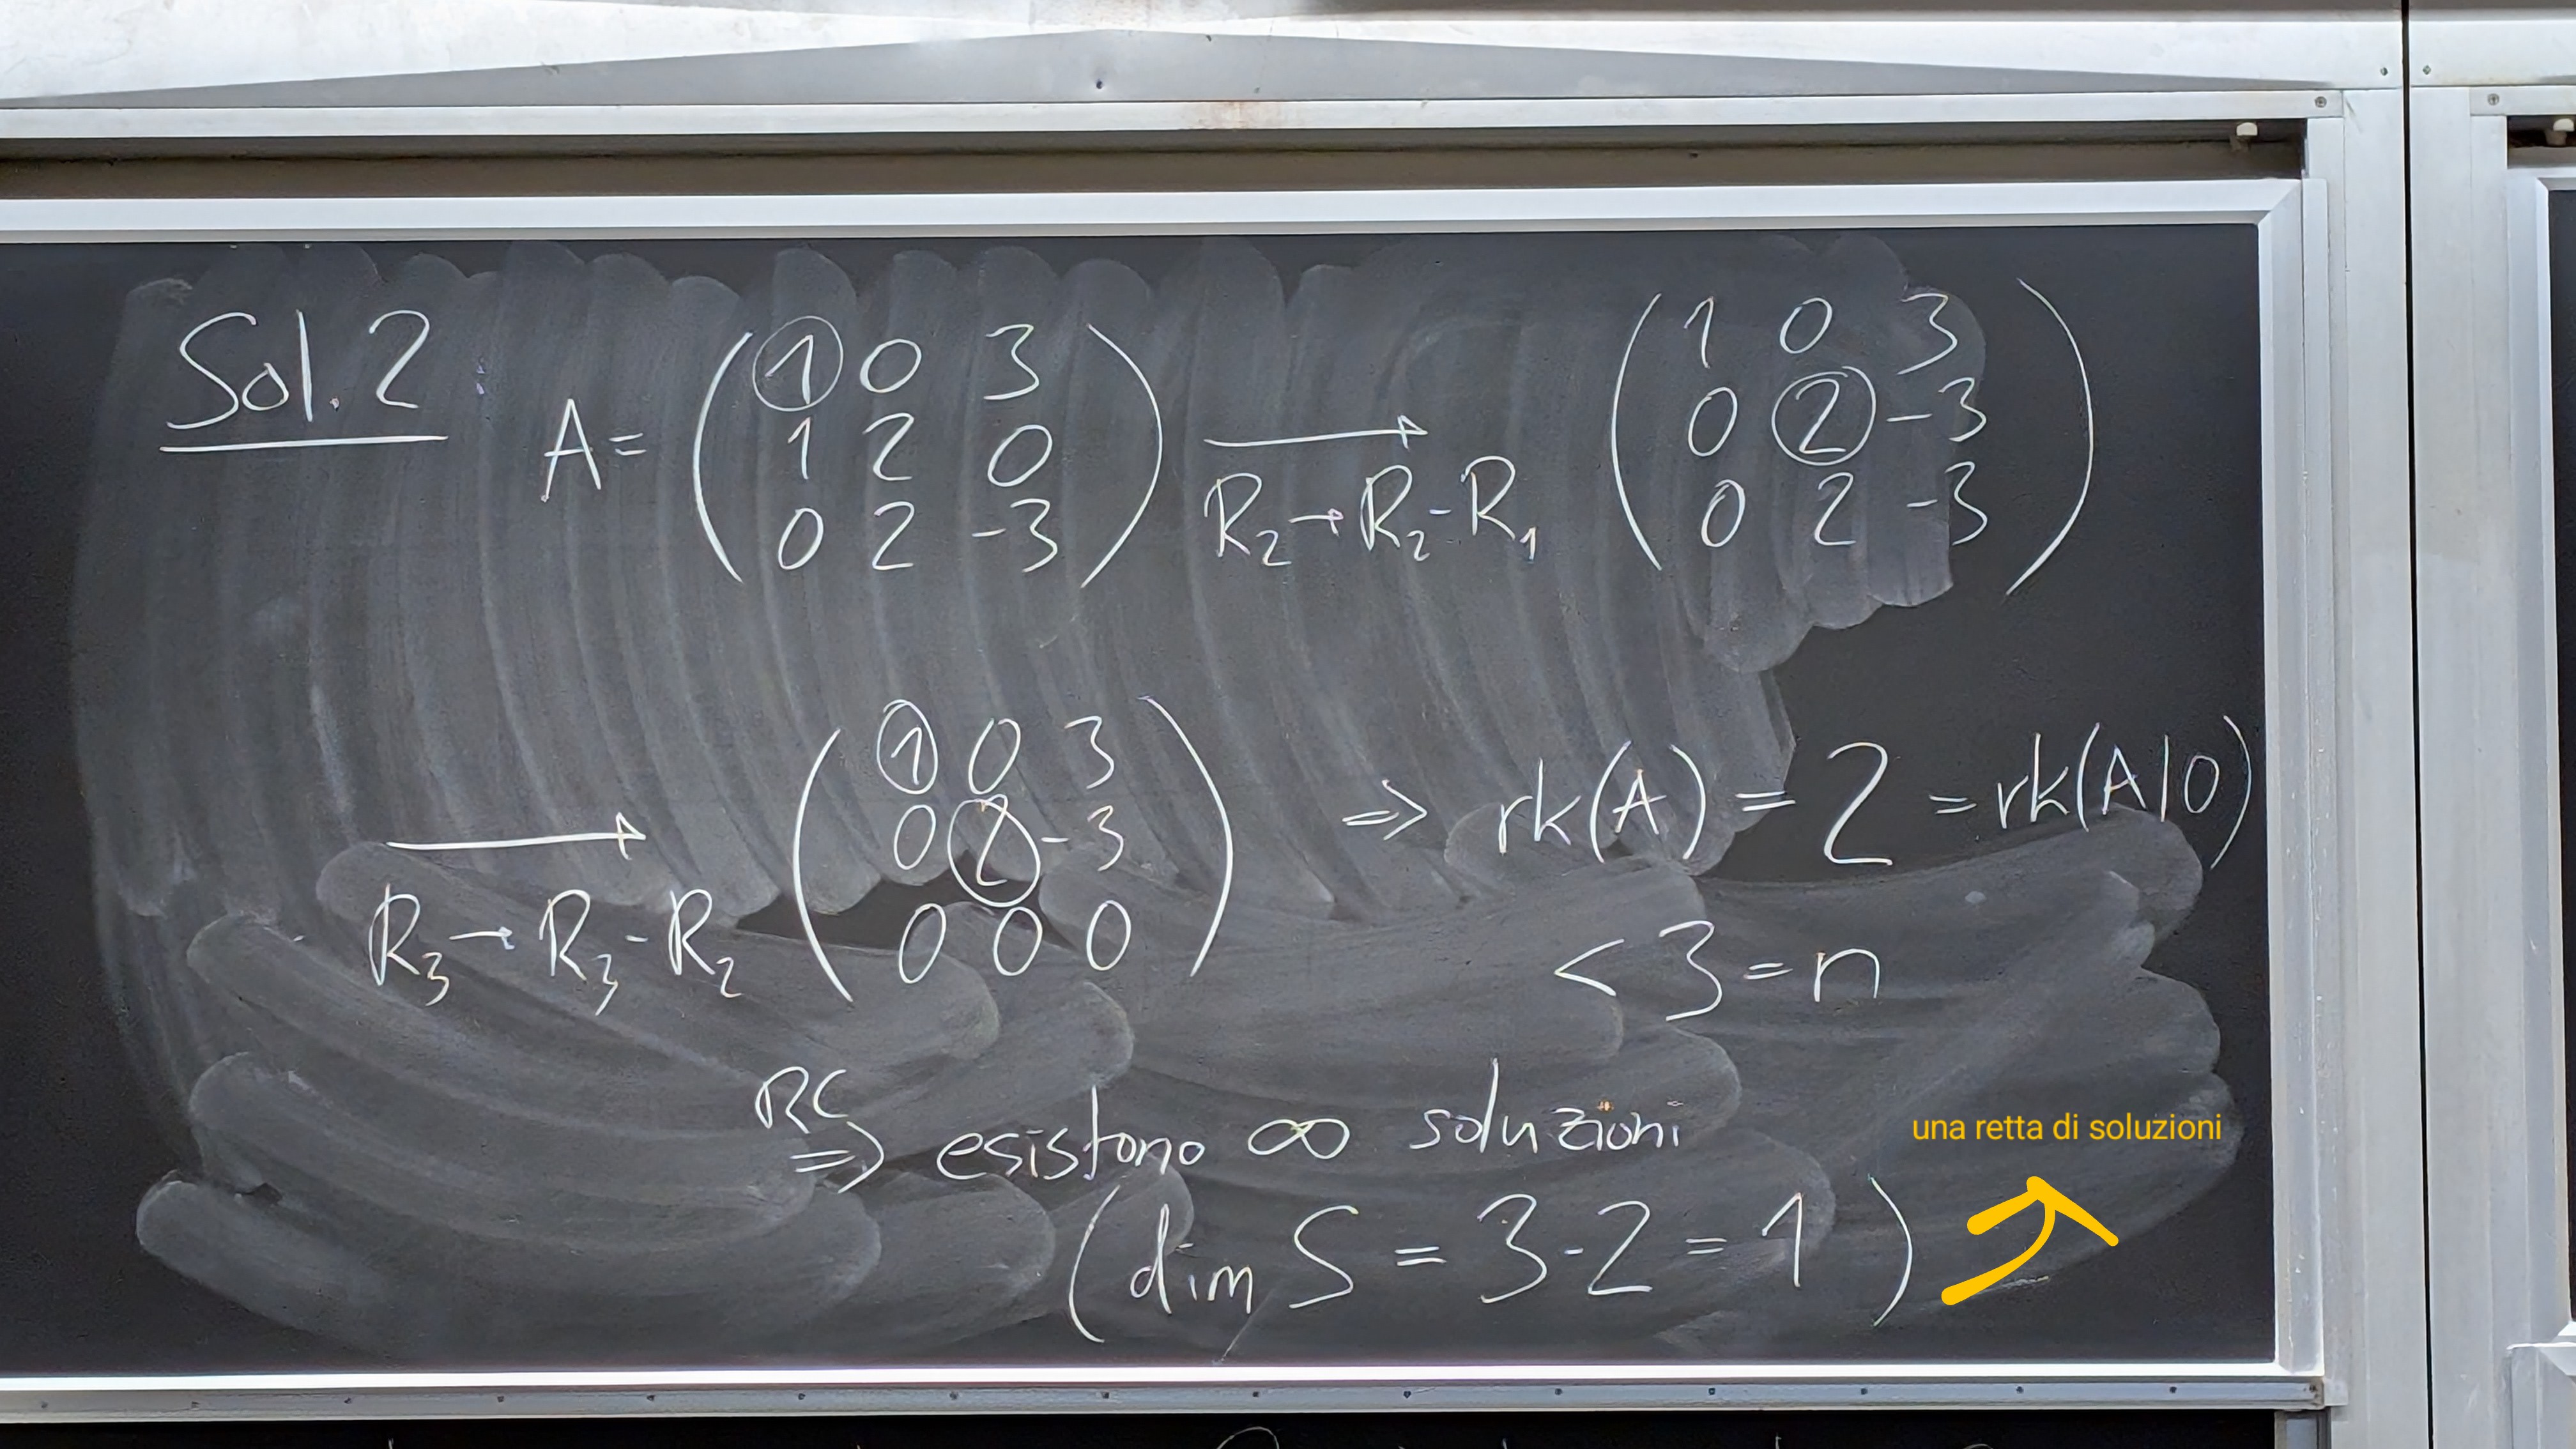 Sol. 2 :
A = ( 1 0 3
1 2 0
0 2 -3 )
R₂ → R₂ - R₁
( 1 0 3
0 2 -3
0 2 -3 )
R₃ → R₃ - R₂
( 1 0 3
0 2 -3
0 0 0 )
⇒ rk(A) = 2 = rk(A|0)
< 3 = n
RC
⇒ esistono ∞ soluzioni
una retta di soluzioni
(dim S = 3 - 2 = 1)